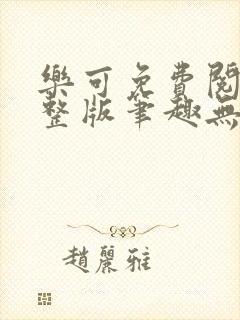 樂可免費閱
整版筆趣無
趙麗雅